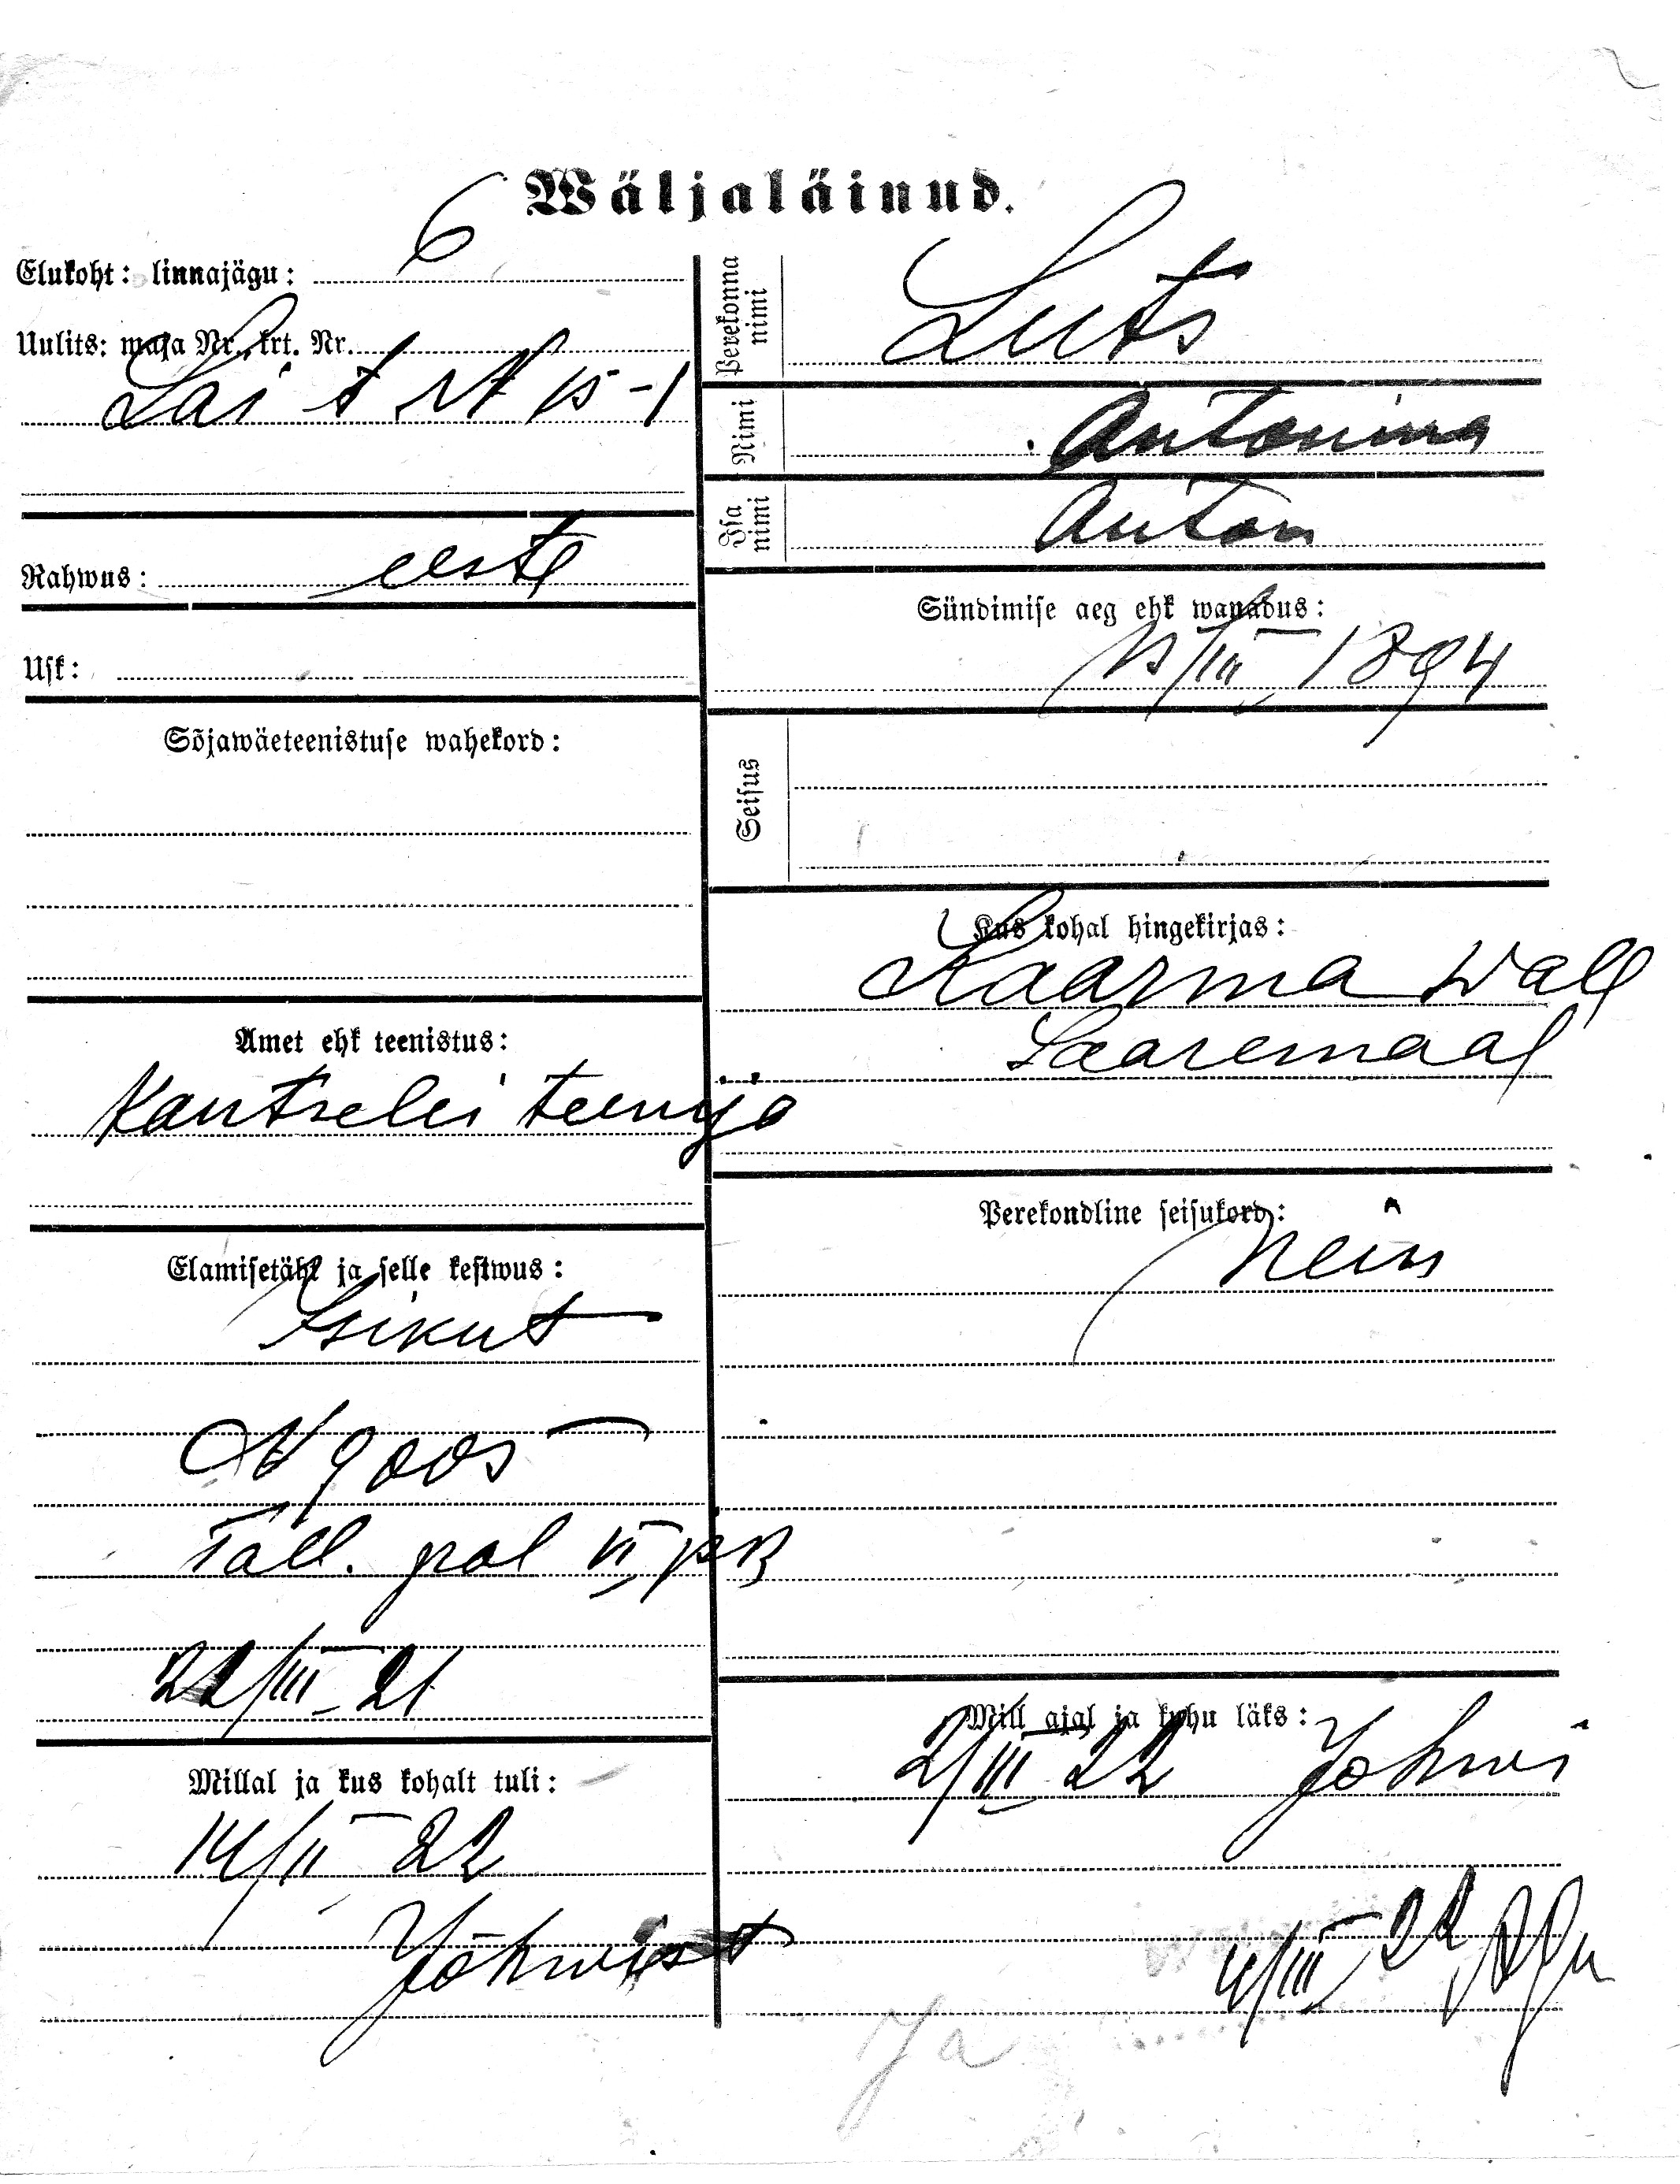 Wäljaläinud.
Elukoht: linnajägu: 6
Uulits: maja Nr., krt. Nr.
Lai t № 15-1
Rahwus: eesti
Usk:
Sõjawäeteenistuse wahekord:
Amet ehk teenistus:
Kantselei teenija
Elamisetäht ja selle kestwus:
Isikut
№ 9005
Tall. pol VI
22/III 21
Millal ja kus kohalt tuli:
14/II 22
Jõhwist
Perekonna nimi
Luts
Nimi
Antonina
Isa nimi
Anton
Sündimise aeg ehk wanadus:
/III 1894
Seisus
Kus kohal hingekirjas:
Kaarma wall
Saaremaal
Perekondline seisukord:
Neiu
Mill ajal ja kuhu läks:
2/III 22 Jõhwi
4/III 22
Ja